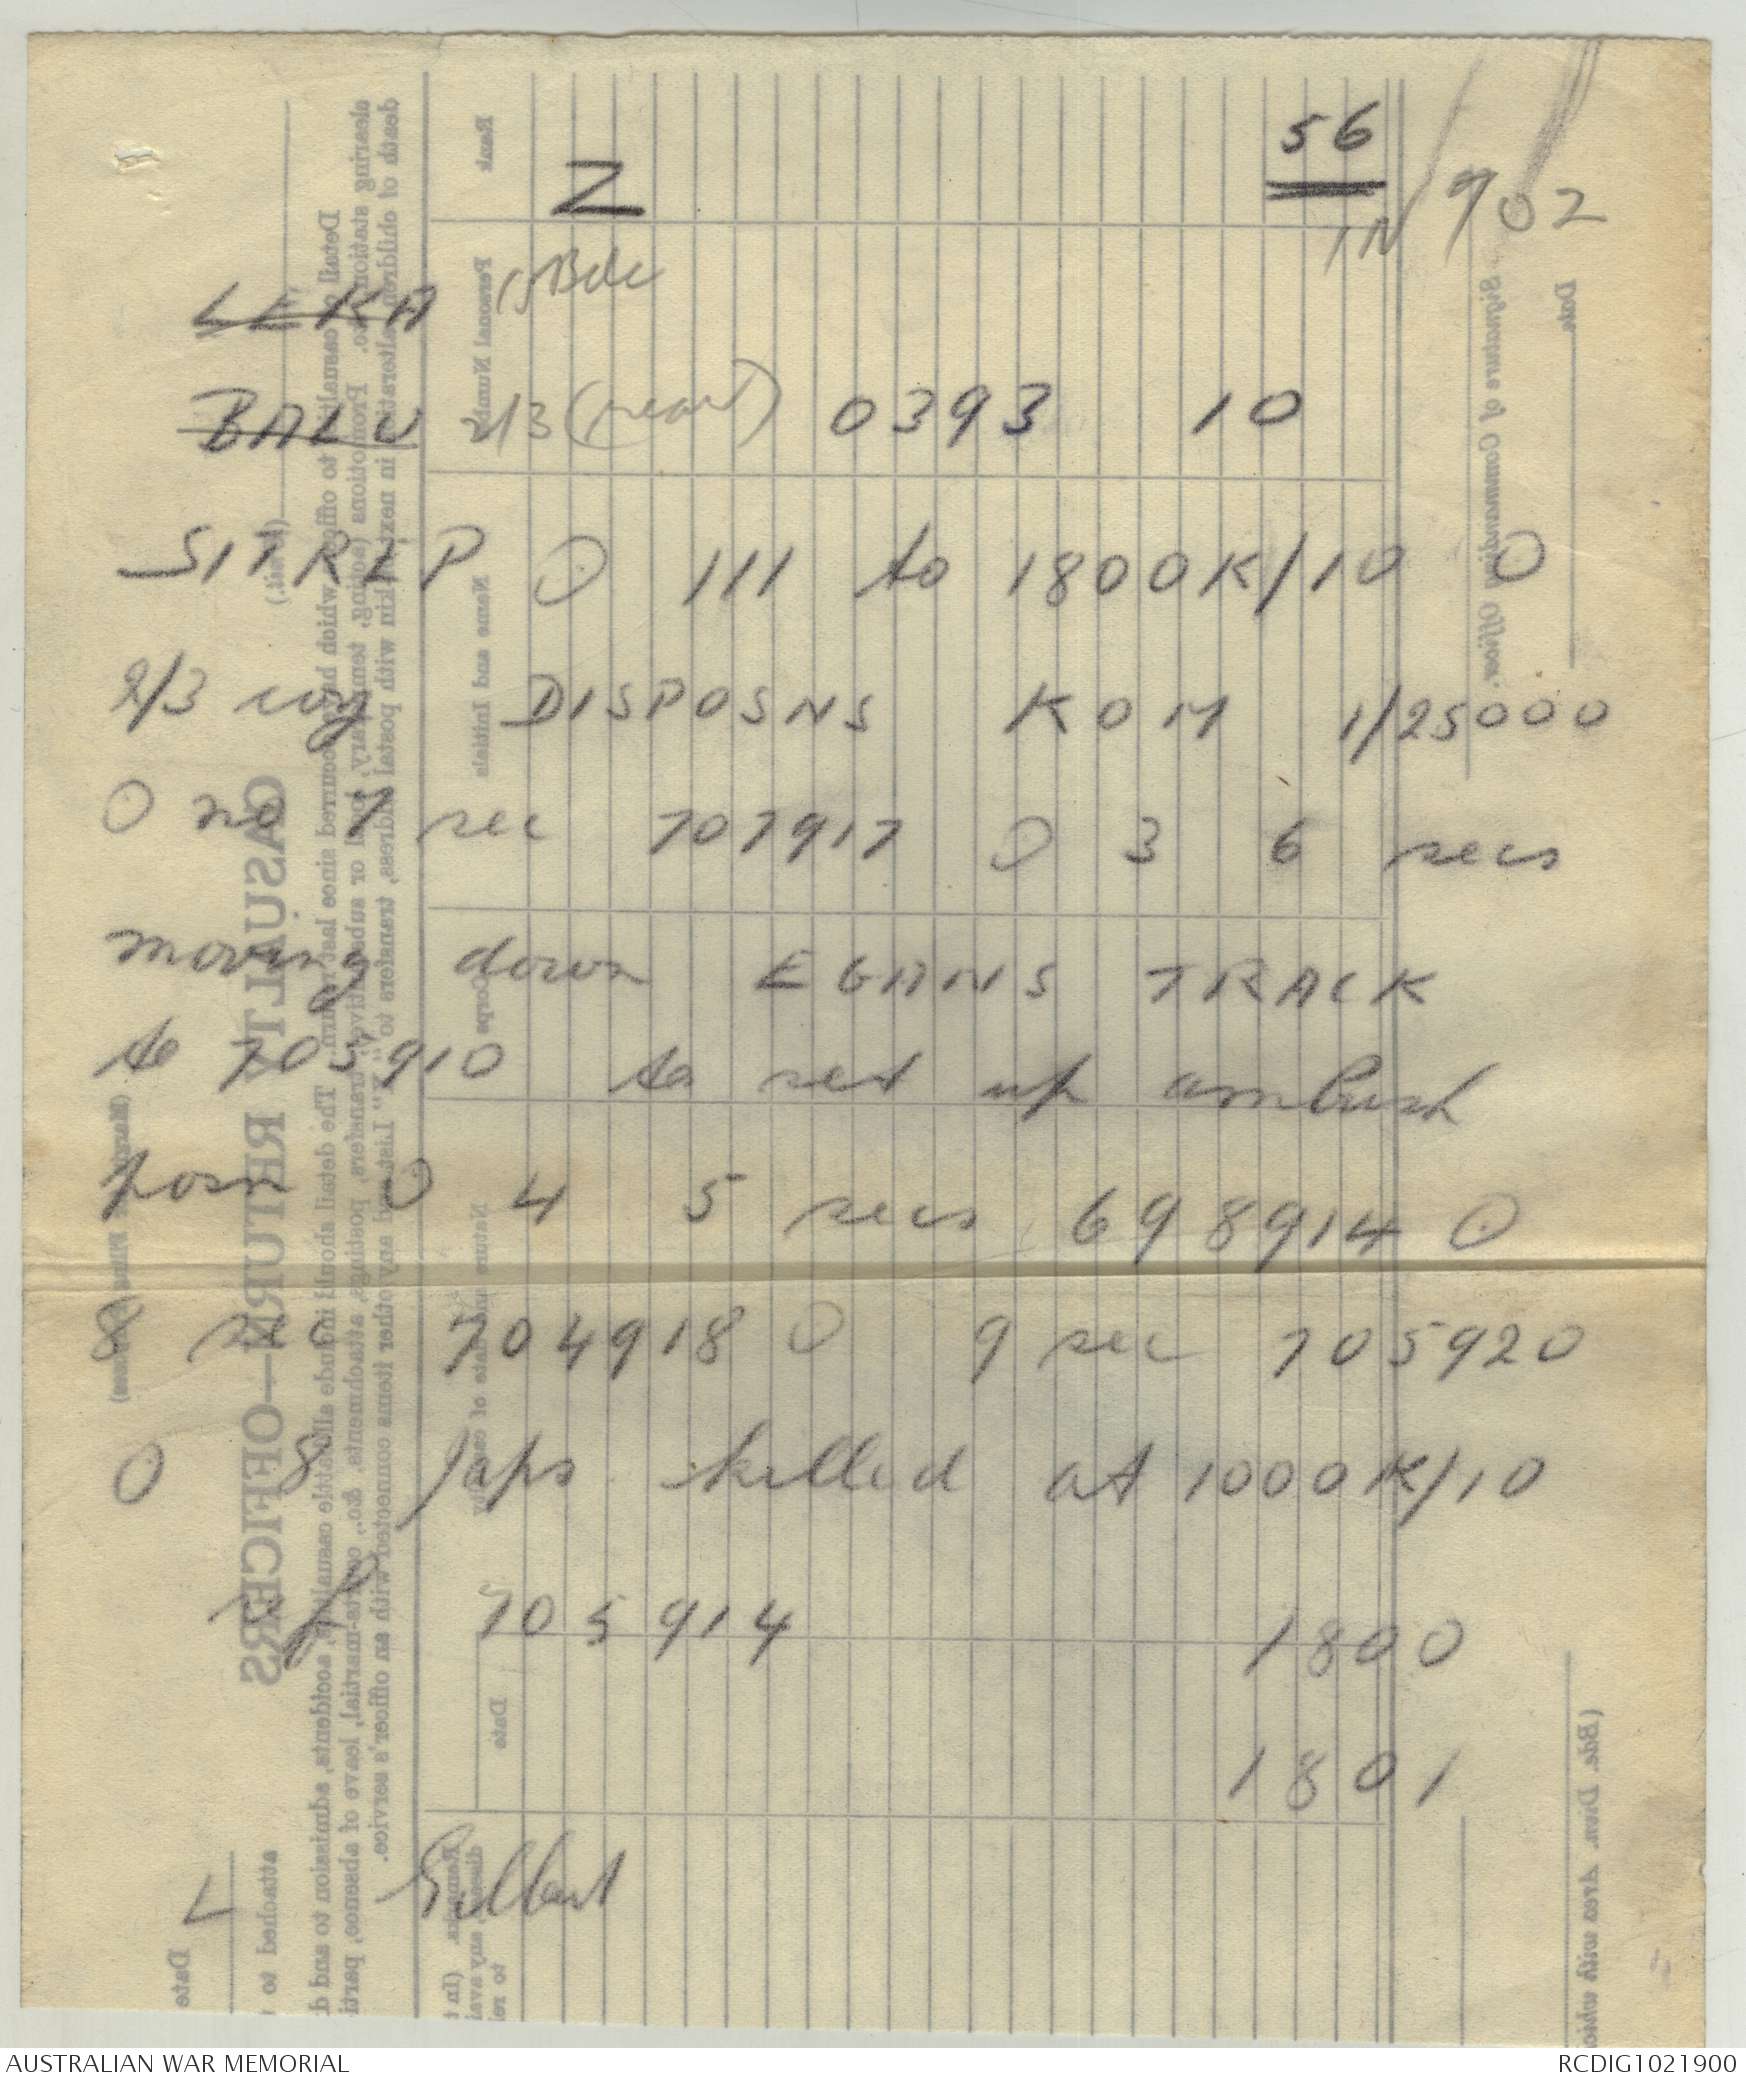 56
Z
IN 902
LEKA 15 Bde
BALU 2/3 (rear) 0393 10
SITREP O 111 to 1800K/10 O
2/3 coy DISPOSNS KOM 1/25000
O no 7 sec 707917 O 3 6 secs
moving down EGANS TRACK
to 705910 to set up ambush
posn O 4 5 secs 698914 O
8 sec 704918 O 9 sec 705920
O 8 Japs killed at 1000K/10
ref 705914 1800
1801
L Gilbert
AUSTRALIAN WAR MEMORIAL
RCDIG1021900